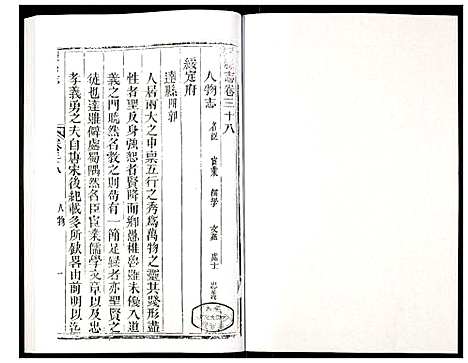 縣志卷三十八
人物志 名冠 宦業 儒學 文苑 處士 忠義
綏定府
達縣附郭
人居兩大之中稟五行之秀為萬物之靈其踐形盡
性者聖反身強恕者賢降而鄉愚椎魯雖未優入道
義之門聽然名教之則苟有一節足錄者亦聖賢之
徒也達雖僻處蜀隅然名臣宦業儒學文章以及忠
孝義勇之夫自唐宋後紀載多所缺畧由前明以迄
卷三十八 人物 一